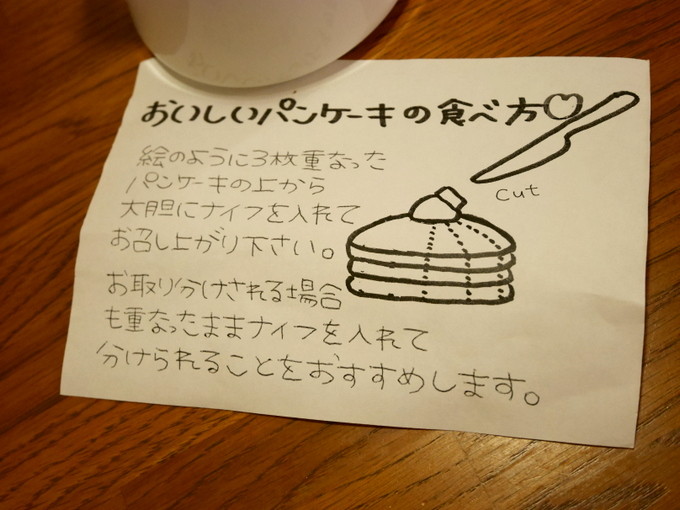 おいしいパンケーキの食べ方♡
絵のように3枚重なった
パンケーキの上から
大胆にナイフを入れて
お召し上がり下さい。
お取り分けされる場合
も重なったままナイフを入れて
分けられることをおすすめします。
cut